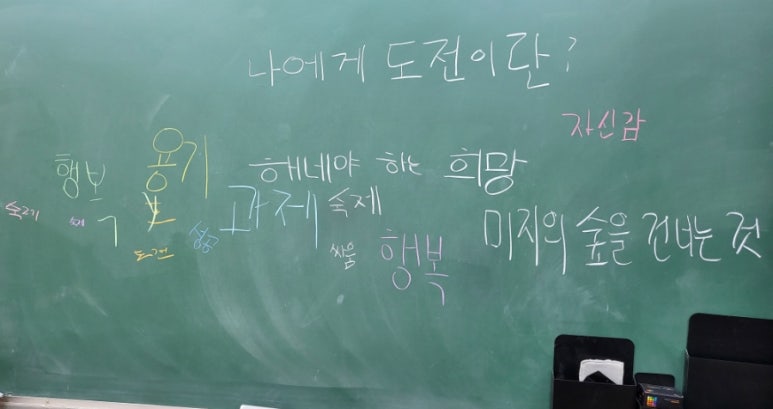 나에게 도전이란?
자신감
용기
행보
해네야 하는 희망
과제 숙제
미지의 숲을 건너는 것
성공
도전
싸움
행복